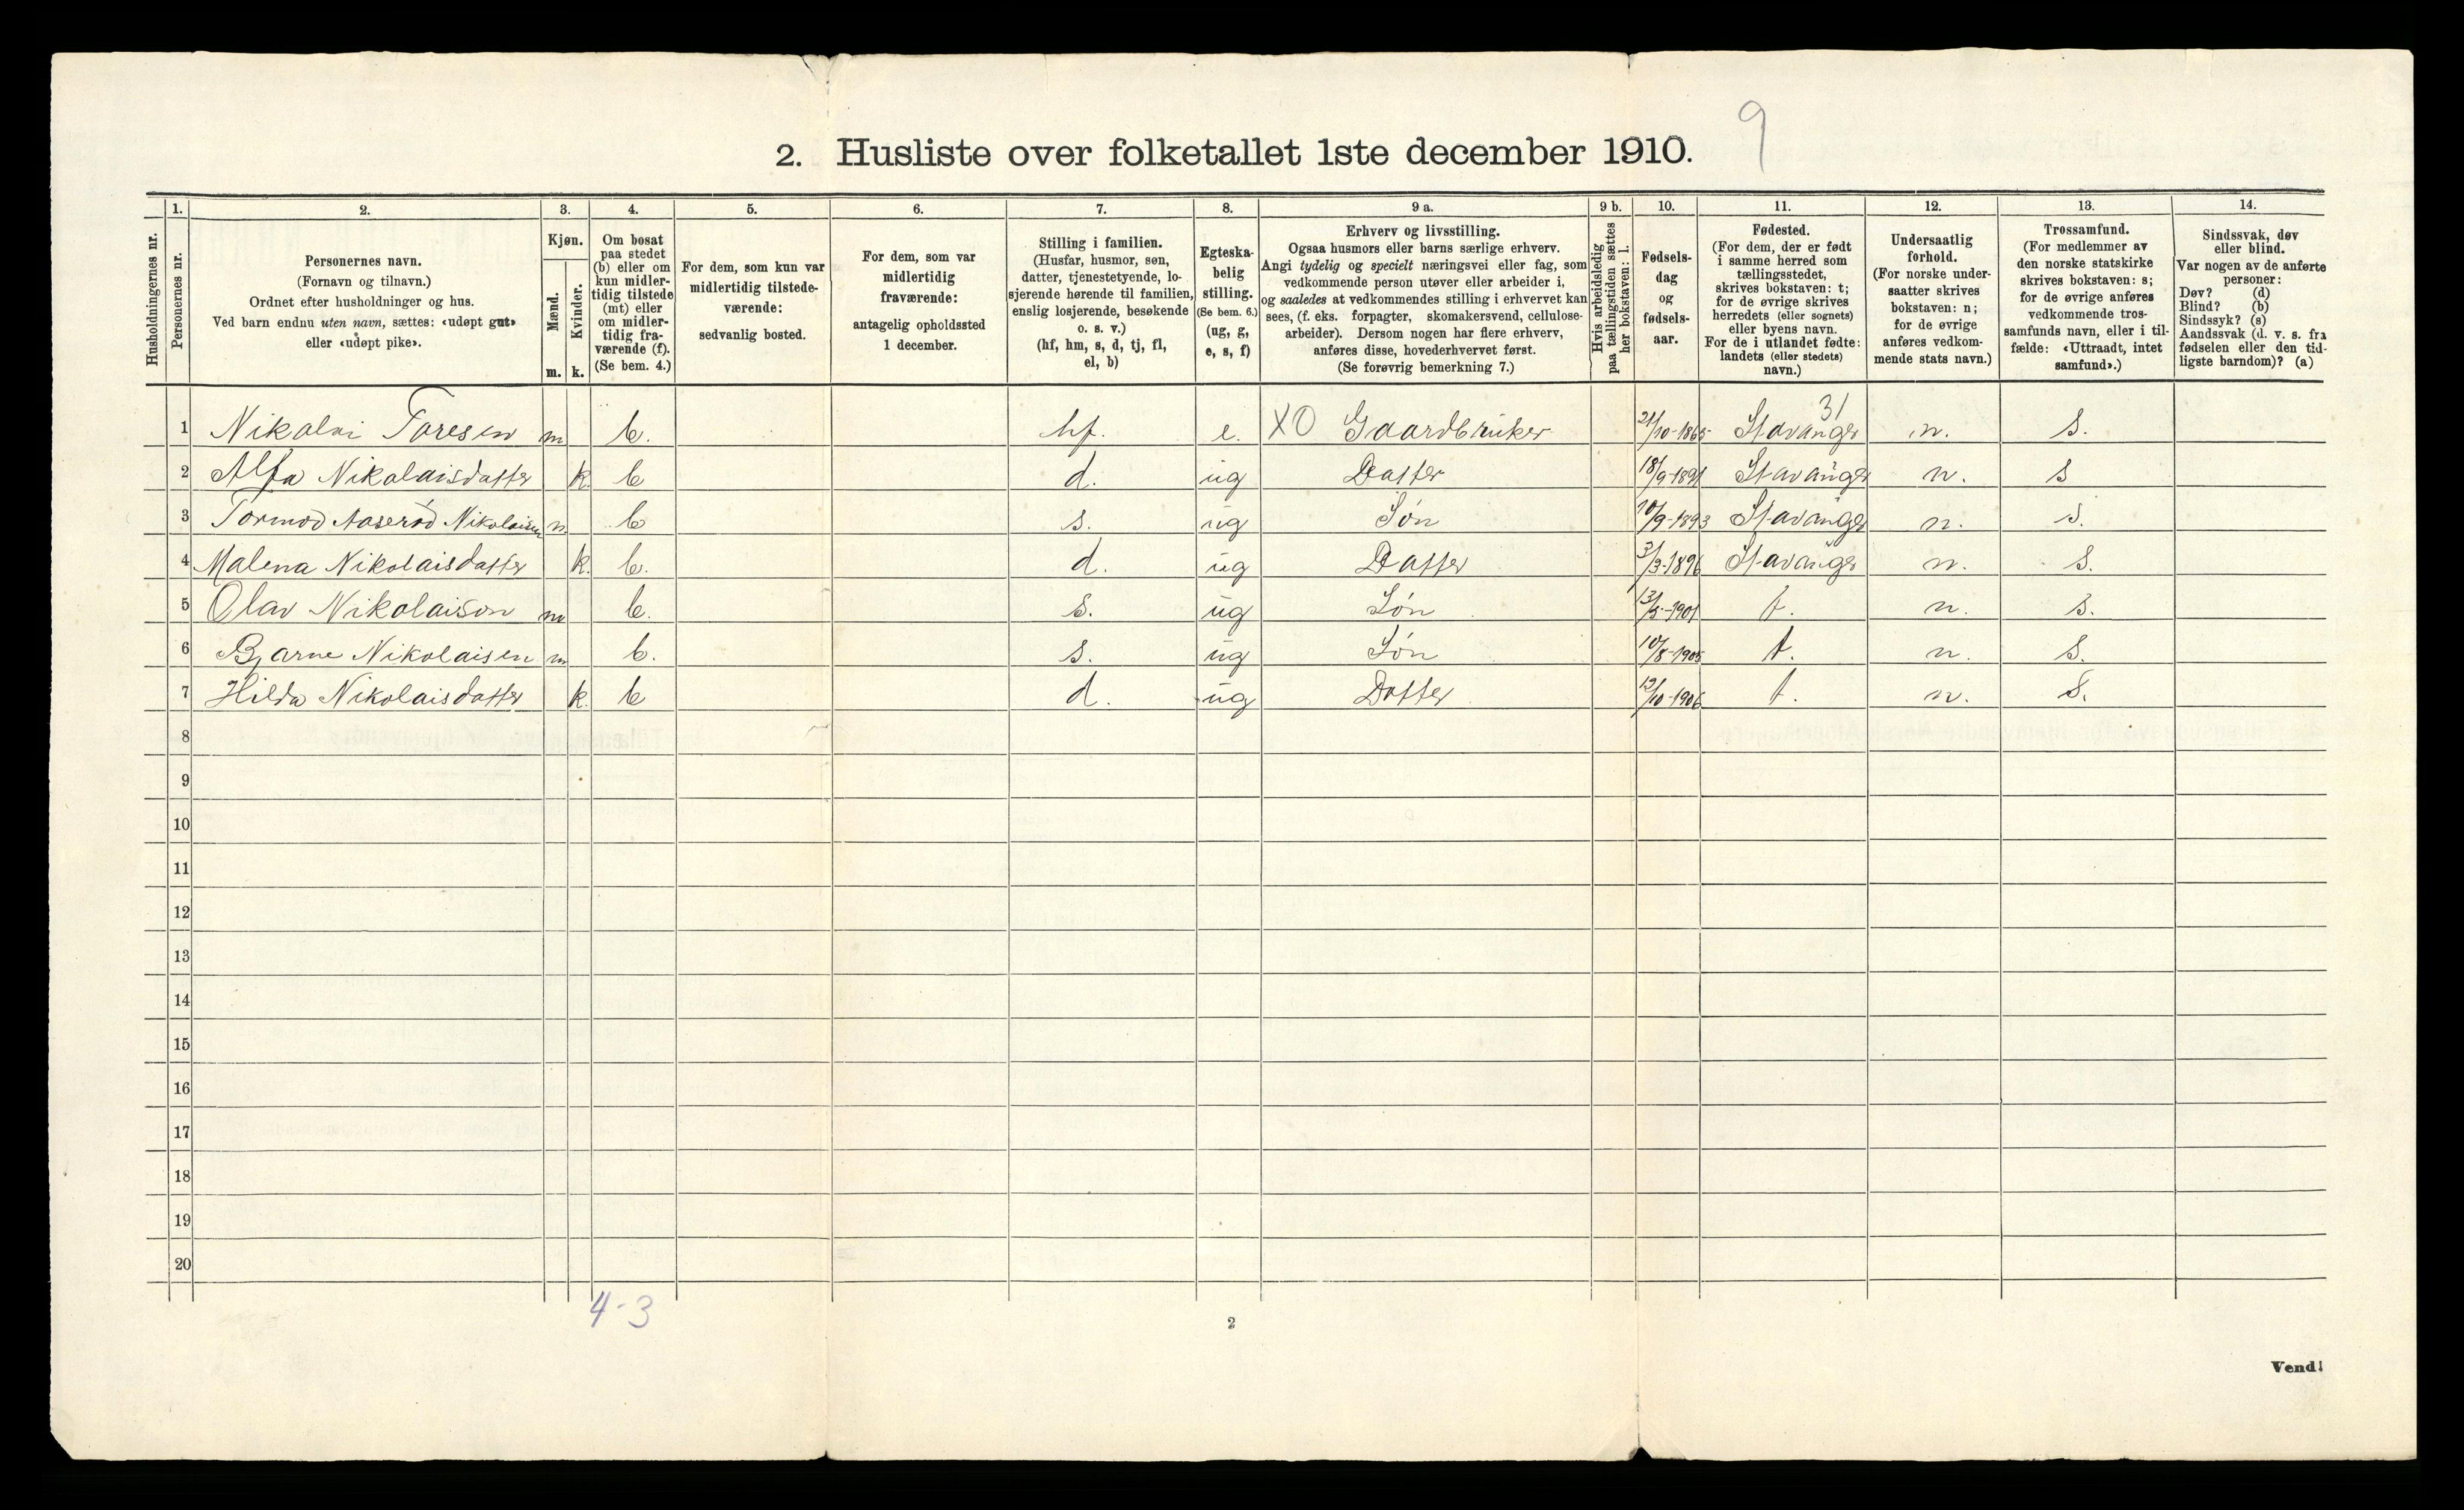 9
2. Husliste over folketallet 1ste december 1910.
Husholdningernes nr.
1.
Personernes nr.
2.
Personernes navn.
(Fornavn og tilnavn.)
Ordnet efter husholdninger og hus.
Ved barn endnu uten navn, sættes: «udøpt gut»
eller «udøpt pike».
3.
Kjøn.
Mænd.
Kvinder.
m. k.
4.
Om bosat
paa stedet
(b) eller om
kun midler-
tidig tilstede
(mt) eller
om midler-
tidig fra-
værende (f).
(Se bem. 4.)
5.
For dem, som kun var
midlertidig tilstede-
værende:
sedvanlig bosted.
6.
For dem, som var
midlertidig
fraværende:
antagelig opholdssted
1 december.
7.
Stilling i familien.
(Husfar, husmor, søn,
datter, tjenestetyende, lo-
sjerende hørende til familien,
enslig losjerende, besøkende
o. s. v.)
(hf, hm, s, d, tj, fl,
el, b)
8.
Egteska-
belig
stilling.
(Se bem. 6.)
(ug, g,
e, s, f)
9 a.
Erhverv og livsstilling.
Ogsaa husmors eller barns særlige erhverv.
Angi tydelig og specielt næringsvei eller fag, som
vedkommende person utøver eller arbeider i,
og saaledes at vedkommendes stilling i erhvervet kan
sees, (f. eks. forpagter, skomakersvend, cellulose-
arbeider). Dersom nogen har flere erhverv,
anføres disse, hovederhvervet først.
(Se forøvrig bemerkning 7.)
9 b.
Hvis arbeidsledig
paa tællingstiden sættes
her bokstaven: l.
10.
Fødsels-
dag
og
fødsels-
aar.
11.
Fødested.
(For dem, der er født
i samme herred som
tællingsstedet,
skrives bokstaven: t;
for de øvrige skrives
herredets (eller sognets)
eller byens navn.
For de i utlandet fødte:
landets (eller stedets)
navn.)
12.
Undersaatlig
forhold.
(For norske under-
saatter skrives
bokstaven: n;
for de øvrige
anføres vedkom-
mende stats navn.)
13.
Trossamfund.
(For medlemmer av
den norske statskirke
skrives bokstaven: s;
for de øvrige anføres
vedkommende tros-
samfunds navn, eller i til-
fælde: «Uttraadt, intet
samfund».)
14.
Sindssvak, døv
eller blind.
Var nogen av de anførte
personer:
Døv? (d)
Blind? (b)
Sindssyk? (s)
Aandssvak (d. v. s. fra
fødselen eller den tid-
ligste barndom)? (a)
31
1 Nikolai Toresen m b. hf. e. XO Gaardbruker 21/10-1865 Stavanger n. s.
2 Alfa Nikolaisdatter k. b d. ug Datter 18/9-1891 Stavanger n. s
3 Tormod Aaserød Nikolaisen m b s. ug Søn 10/9-1893 Stavanger n. s.
4 Malena Nikolaisdatter k. b. d. ug Datter 3/3-1896 Stavanger n. s.
5 Olav Nikolaison m b. s. ug Søn 13/5-1901 t. n. s.
6 Bjarne Nikolaisen m b. s. ug Søn 10/8-1905 t. n. s.
7 Hilda Nikolaisdatter k. b d. ug Datter 12/10-1906 t. n. s.
8
9
10
11
12
13
14
15
16
17
18
19
20
4-3
2
Vend!